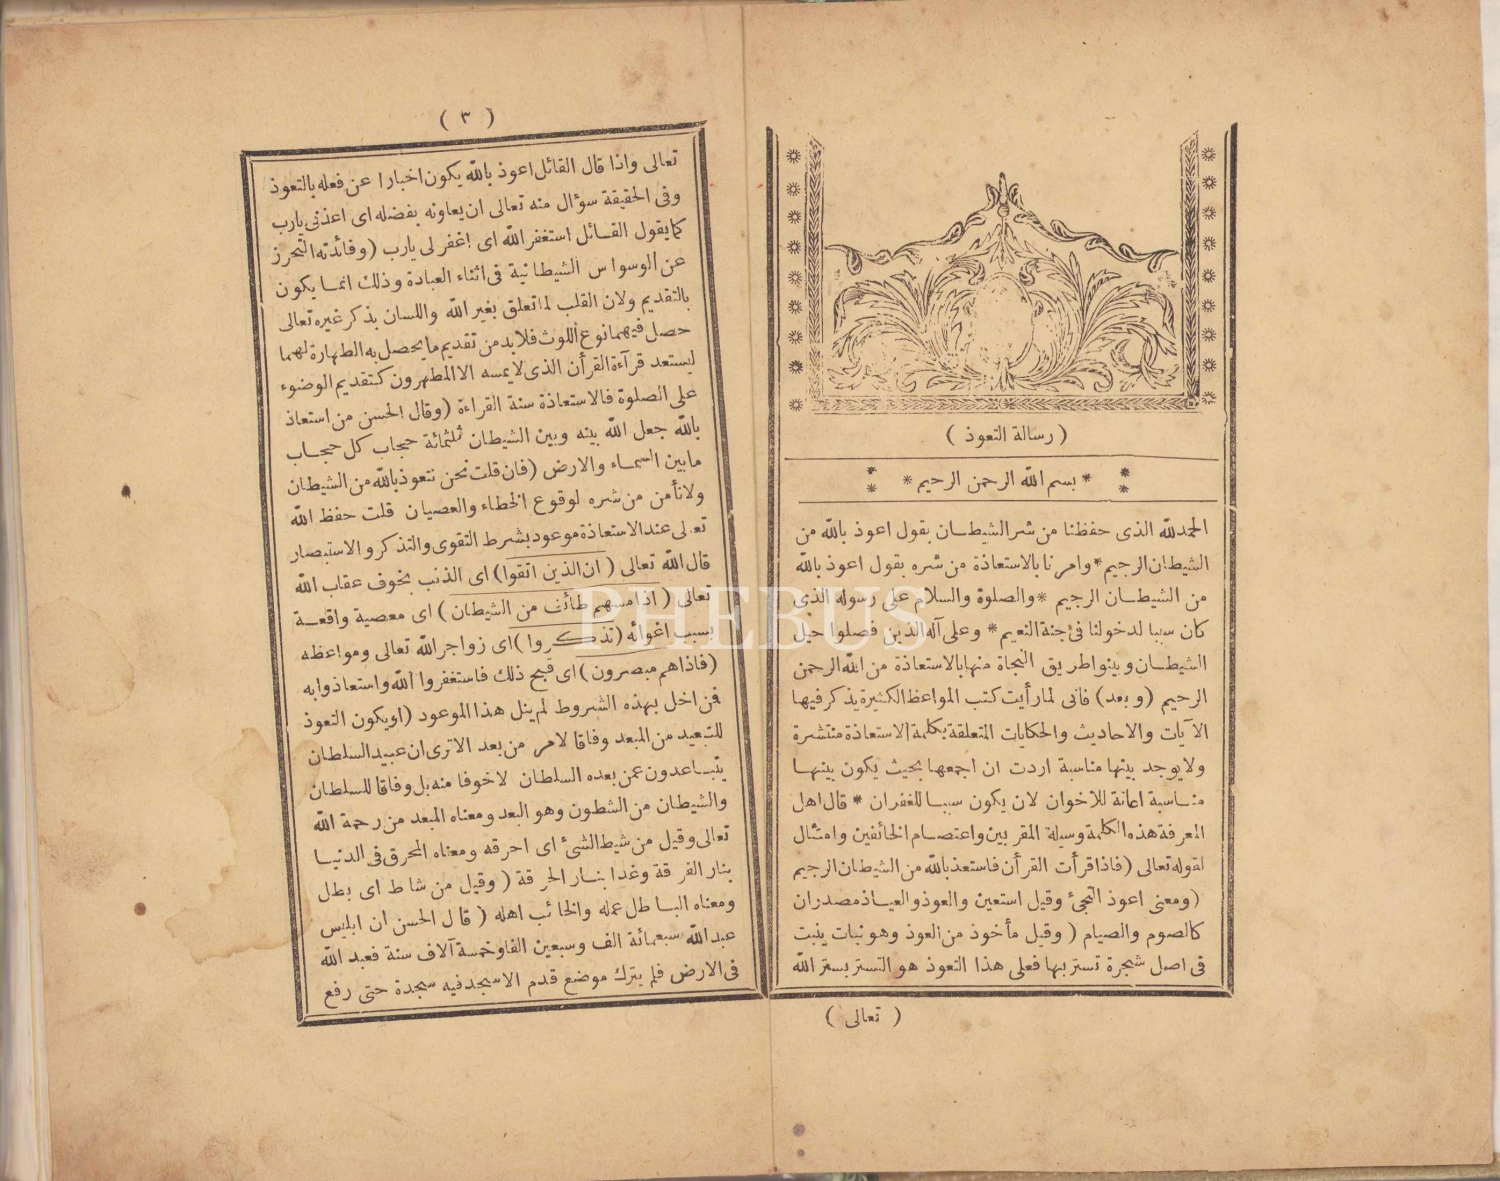 ( رسالة التعوذ )
* بسم الله الرحمن الرحيم *
الحمدلله الذى حفظنا من شر الشيطان بقول اعوذ بالله من
الشيطان الرجيم * وامرنا بالاستعاذة من شره بقول اعوذ بالله
من الشيطان الرجيم * والصلوة والسلام على رسوله الذى
كان سببا لدخولنا فى جنة النعيم * وعلى آله الذين فصلوا حيل
الشيطان وبينوا طريق النجاة منها بالاستعاذة من الله الرحمن
الرحيم (وبعد) فانى لما رأيت كتب المواعظ الكثيرة يذكر فيها
الآيات والاحاديث والحكايات المتعلقة بكلمة الاستعاذة منتشرة
ولا يوجد بينها مناسبة اردت ان اجمعها بحيث يكون بينها
مناسبة اعانة للاخوان لان يكون سببا للغفران * قال اهل
المعرفة هذه الكلمة وسيلة المقربين واعتصام الخائفين وامتثال
لقوله تعالى (فاذا قرأت القرأن فاستعذ بالله من الشيطان الرجيم
(ومعنى اعوذ التجئ وقيل استعين والعوذ والعياذ مصدران
كالصوم والصيام ( وقيل مأخوذ من العوذ وهو نبات ينبت
فى اصل شجرة تستر بها فعلى هذا التعوذ هو التستر بستر الله
( تعالى )
( ٣ )
تعالى واذا قال القائل اعوذ بالله يكون اخبارا عن فعله بالتعوذ
وفى الحقيقة سؤال منه تعالى ان يعاونه بفضله اى اعذنى يارب
كما يقول القائل استغفر الله اى اغفر لى يارب (وفائدته التحرز
عن الوسواس الشيطانية فى اثناء العبادة وذلك انما يكون
بالتقديم ولان القلب لما تعلق بغير الله واللسان بذكر غيره تعالى
حصل فيهما نوع اللوث فلابد من تقديم ما يحصل به الطهارة لهما
ليستعد قرآءة القرأن الذى لا يمسه الا المطهرون كتقديم الوضوء
على الصلوة فالاستعاذة سنة القراءة (وقال الحسن من استعاذ
بالله جعل الله بينه وبين الشيطان ثلثمائة حجاب كل حجاب
مابين السماء والارض (فان قلت نحن نتعوذ بالله من الشيطان
ولا نأمن من شره لوقوع الخطاء والعصيان قلت حفظ الله
تعالى عند الاستعاذة موعود بشرط التقوى والتذكر والاستبصار
قال الله تعالى ( ان الذين اتقوا) اى الذنب بخوف عقاب الله
تعالى ( اذا مسهم طائف من الشيطان ) اى معصية واقعة
بسبب اغوائه (تذكروا) اى زواجر الله تعالى ومواعظه
(فاذاهم مبصرون) اى قبح ذلك فاستغفروا الله واستعاذوا به
فمن اخل بهذه الشروط لم ينل هذا الموعود (او يكون التعوذ
للتبعيد من المبعد وفاقا لامر من بعد الا ترى ان عبيد السلطان
يتباعدون عمن بعده السلطان لا خوفا منه بل وفاقا للسلطان
والشيطان من الشطون وهو البعد ومعناه المبعد من رحمة الله
تعالى وقيل من شيط الشئ اى احرقه ومعناه المحرق فى الدنيا
بنار الفرقة وغدا بنار الحرقة ( وقيل من شاط اى بطل
ومعناه الباطل عمله والخائب اهله ( قال الحسن ان ابليس
عبد الله سبعمائة الف وسبعين الفا وخمسة آلاف سنة فعبد الله
فى الارض فلم يترك موضع قدم الا سجد فيه سجدة حتى رفع
PHEBUS